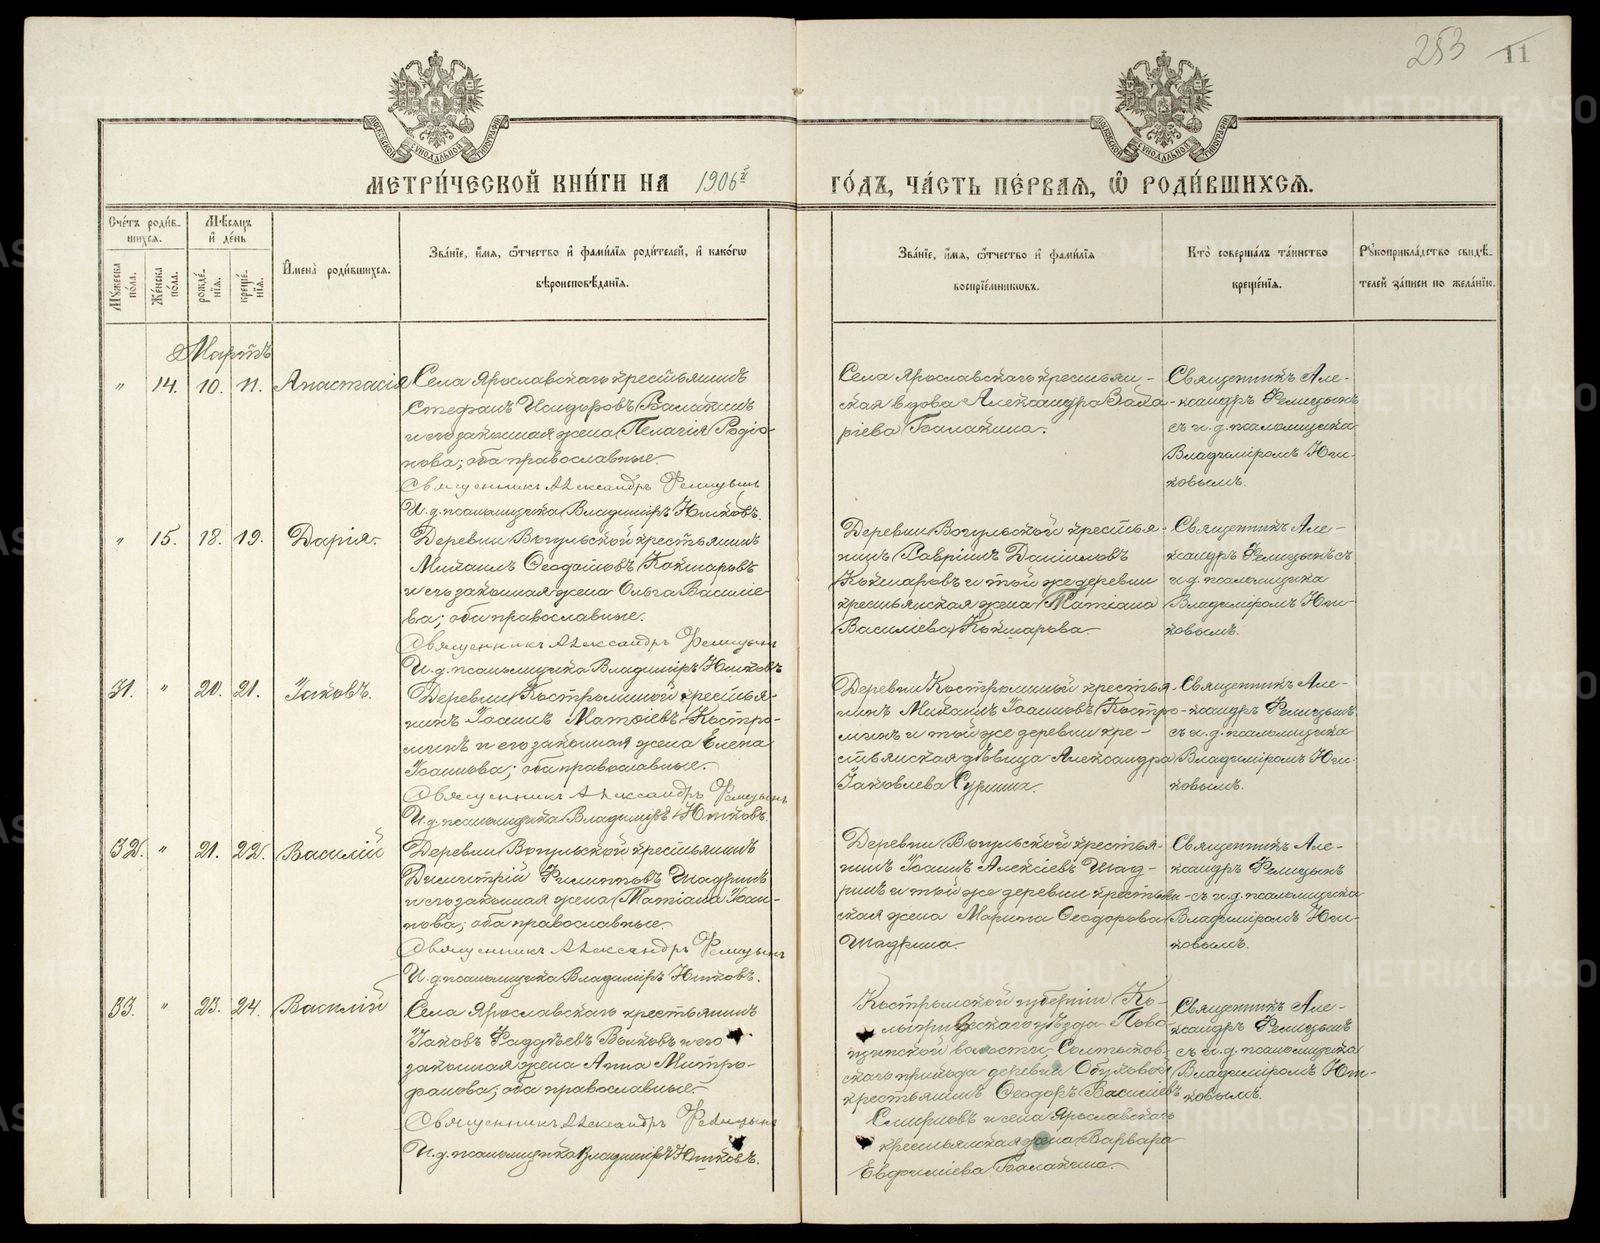 253 11
МЕТРИ́ЧЕСКОЙ КНИ́ГИ НА 1906й ГО́ДЪ, ЧА́СТЬ ПЕ́РВАЯ, Ѡ҆ РОДИ́ВШИХСѦ.
Сче́тъ роди́вшихся.
Мѣ́сяцъ и҆ де́нь
Мꙋ́жеска по́ла.
Же́нска по́ла.
рожде́нїѧ.
креще́нїѧ.
И҆мена̀ роди́вшихся.
Зва́нїе, и҆́мѧ, ѻ҆́тчество и҆ фами́лїѧ роди́телей, и҆ како́гѡ
вѣроисповѣ́данїѧ.
Зва́нїе, и҆́мѧ, ѻ҆́тчество и҆ фами́лїѧ
воспрїе́мникѡвъ.
Кто̀ соверша́лъ та́инство
креще́нїѧ.
Рꙋкоприкла́дство свидѣ́-
телей за́писи по жела́нїю.
Мартъ
" 14. 10. 11. Анастасія
Села Ярославскаго крестьянинъ
Стефанъ Исидоровъ Балакинъ
и его законная жена Пелагія Родіо-
нова; оба православные.
Священникъ Александръ Фелицынъ
И. д. псаломщика Владиміръ Юшковъ.
Села Ярославскаго крестьян-
ская вдова Александра Заха-
ріева Балакина.
Священникъ Але-
ксандръ Фелицынъ
съ и. д. псаломщика
Владиміромъ Юш-
ковымъ.
" 15. 18. 19. Дарія.
Деревни Вогульской крестьянинъ
Михаилъ Ѳеодоровъ Кокшаровъ
и его законная жена Ольга Василіе-
ва; оба православные.
Священникъ Александръ Фелицынъ
И. д. псаломщика Владиміръ Юшковъ
Деревни Вогульской крестья-
нинъ Гавріилъ Данииловъ
Кокшаровъ и той же деревни
крестьянская жена Татіана
Василіева Кокшарова.
Священникъ Але-
ксандръ Фелицынъ съ
и. д. псаломщика
Владиміромъ Юш-
ковымъ.
31. " 20. 21. Іаковъ.
Деревни Костроминой крестья-
нинъ Іоаннъ Матѳіевъ Костро-
минъ и его законная жена Елена
Іоаннова; оба православные.
Священникъ Александръ Фелицынъ
И. д. псаломщика Владиміръ Юшковъ.
Деревни Костроминой крестья-
нинъ Михаилъ Іоанновъ Костро-
минъ и той же деревни кре-
стьянская дѣвица Александра
Іаковлева Сурнина.
Священникъ Але-
ксандръ Фелицынъ
съ и. д. псаломщика
Владиміромъ Юш-
ковымъ.
32. " 21. 22. Василій
Деревни Вогульской крестьянинъ
Димитрій Филипповъ Шадринъ
и его законная жена Татіана Іоан-
нова; оба православные.
Священникъ Александръ Фелицынъ
И. д. псаломщика Владиміръ Юшковъ.
Деревни Вогульской крестья-
нинъ Іоаннъ Алексіевъ Шад-
ринъ и той же деревни крестьян-
ская жена Марина Ѳеодорова
Шадрина.
Священникъ Але-
ксандръ Фелицынъ
съ и. д. псаломщика
Владиміромъ Юш-
ковымъ.
33. " 23. 24. Василій
Села Ярославскаго крестьянинъ
Іаковъ Фаддѣевъ Волковъ и его
законная жена Анна Митро-
фанова; оба православные.
Священникъ Александръ Фелицынъ
И. д. псаломщика Владиміръ Юшковъ.
Костромской губерніи Ко-
уѣзда
волости,
прихода деревни Обуховой
крестьянинъ Ѳеодоръ Василіевъ
Смирновъ и села Ярославскаго
крестьянская жена Варвара
Евдокимова Балакина.
Священникъ Але-
ксандръ Фелицынъ
съ и. д. псаломщика
Владиміромъ Юш-
ковымъ.
METRIKI.GASO-URAL.RU